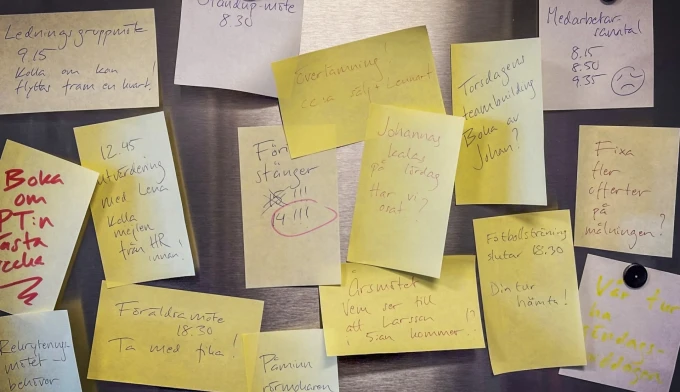 Ledningsgruppmöte
9.15
Kolla om kan
flyttas fram en kvart.
Standup-möte
8.30
Överlämning!
Lena sälj + Lennart
Torsdagens
teambuilding
Boka av
Johan?
Medarbetar-
samtal
8.15
8.50
9.35
Boka
om
PT:n
nästa
vecka
12.45
utvärdering
med Lena
Kolla
mejlen
från HR
innan!
Före
stänger
!!!
4!!!
Johannas
kalas
på lördag
Har vi
osat?
Fixa
fler
offerter
på
målningen?
Föräldramöte
18.30
Ta med fika!
Årsmötet
Vem ser till
att Larsson
5:an kommer..!?
Fotbollsträning
slutar 18.30
Din tur
hämta!
Vår tur
ha
söndags-
middagen
Rekryterings-
mötet -
behöver
Påminn
rörmokaren